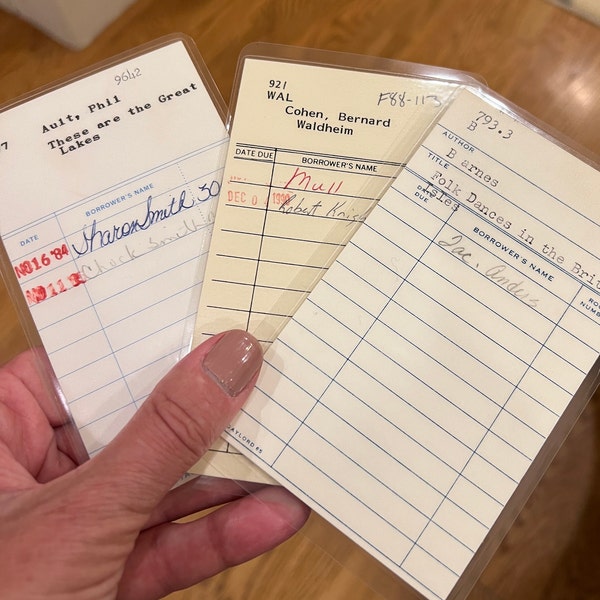 9642
7 Ault, Phil
These are the Great
Lakes
DATE BORROWER'S NAME
NO16'84 Sharon Smith 30
Chuck Smith
921
WAL
F88-113
Cohen, Bernard
Waldheim
DATE DUE BORROWER'S NAME
Mull
DEC 0 1990 Robert
793.3
B
AUTHOR
B arnes
TITLE
Folk Dances in the Brit
Isles
DATE DUE BORROWER'S NAME RO
NUMB
Zac. Anders
GAYLORD 45